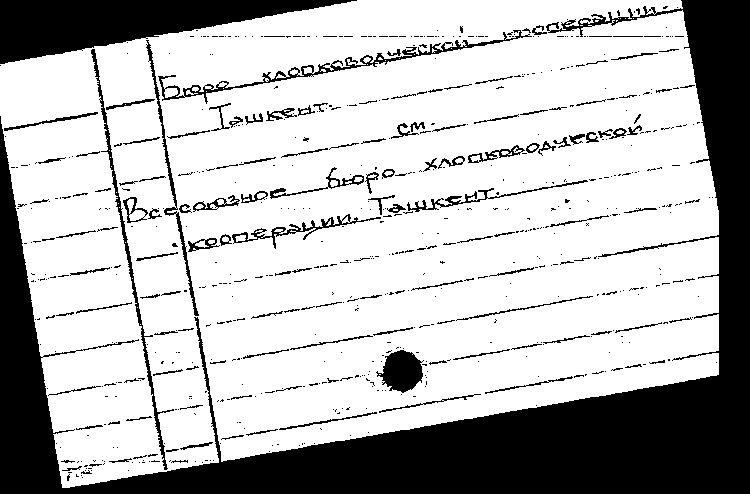 Бюро хлопководческой кооперации.
Ташкент.
см.
Всесоюзное бюро хлопководческой
кооперации. Ташкент.